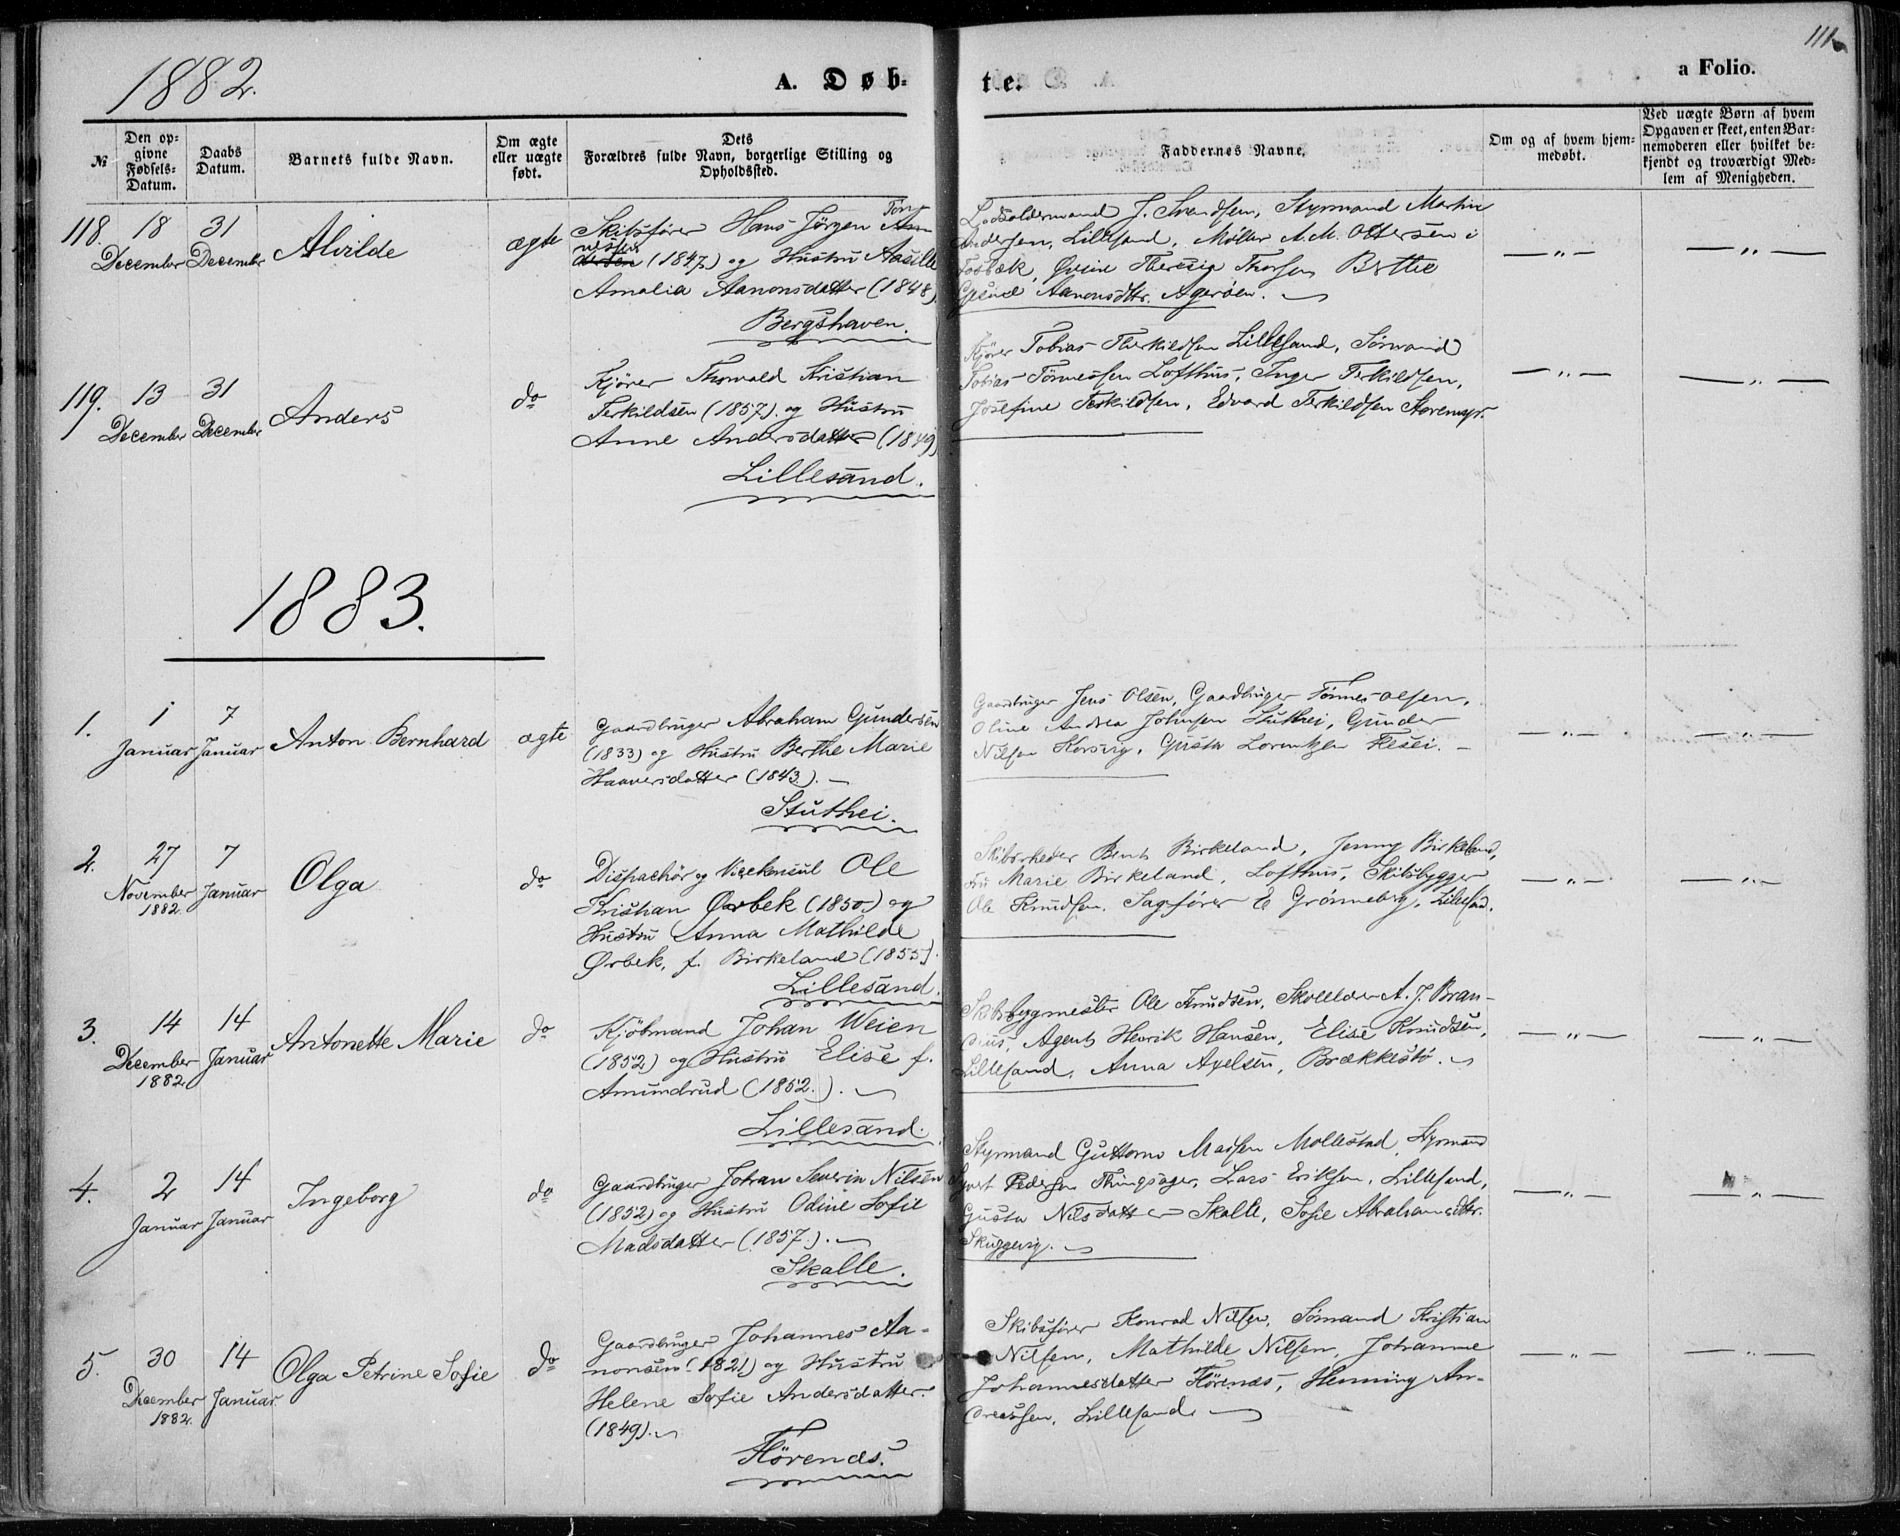 1882.
A. Døb-
te.
111
a Folio.
№
Den op-
givne
Fødsels-
Datum.
Daabs
Datum.
Barnets fulde Navn.
Om ægte
eller uægte
født.
Dets
Forældres fulde Navn, borgerlige Stilling og
Opholdssted.
Faddernes Navne.
Om og af hvem hjem-
medøbt.
Ved uægte Børn af hvem
Opgaven er skeet, enten Bar-
nemoderen eller hvilket be-
kjendt og troværdigt Med-
lem af Menigheden.
118.
18
December
31
December
Alvilde
ægte
Skibsfører Hans Jörgen Tön-
nessen (1847) og Hustru Aasille
Amalia Aanonsdatter (1848)
Bergshaven.
Lodsoldermand J. Svendsen, Styrmand Martin
Andersen, Lillesand, Møller A. M. Ottersen i
Fosbæk, Thorsen Berthe
Aanonsdtr. Agerøen.
— „ —
— „ —
119.
13
December
31
December
Anders
do
Kjører Thorvald Kristian
Terkildsen (1857) og Hustru
Anne Andersdatter (1849)
Lillesand.
Kjører Tobias Therkildsen Lillesand, Sömand
Tobias Tönnessen Lofthus, Inger Terkildsen,
Josefine Terkildsen, Edvard Terkildsen
— „ —
— „ —
1883.
1.
1
Januar
7
Januar
Anton Bernhard
ægte
Gaardbruger Abraham Gundersen
(1833) og Hustru Berthe Marie
Haaversdatter (1843). —
Stuthei.
Gaardbruger Jens Olsen, Gaardbruger Tönnes Olsen,
Oline Andrea Johnsen Stuthei, Gunder
Nilsen Korsvig, Gusta Lorentzen Hesei. —
— „ —
— „ —
2.
27
November
1882.
7
Januar
Olga
do
Dispachör og Vicekonsul Ole
Kristian Ørbek (1850) og
Hustru Anna Mathilde
Ørbek, f. Birkeland (1855).
Lillesand.
Skibsrheder Bent Birkeland, Jenny Birkeland,
Fru Marie Birkeland, Lofthus, Skibsbygger
Ole Knudsen, Sagfører Grönneberg, Lillesand.
— „ —
— „ —
3.
14
December
1882
14
Januar
Antonette Marie
do
Kjöbmand Johan Weien
(1852) og Hustru Elise f.
Amundrud (1852). —
Lillesand.
Skibsbygmester Ole Knudsen, Skolelærer A. J. Bran-
deus, Agent Henrik Hansen, Elise Knudsen,
Lillesand, Anna Axelsen, Brækkestö. —
— „ —
— „ —
4.
2
Januar
14
Januar
Ingeborg
do
Gaardbruger Johan Severin Nilsen
(1852) og Hustru Odine Sofie
Madsdatter (1857). —
Skalle.
Styrmand Guttorm Madsen Mollestad, Styrmand
Syvert Pedersen Thingsager, Lars Eriksen, Lillesand,
Gusta Nilsdatter Skalle, Sofie Abrahamsdtr.
Skuggevig. —
— „ —
— „ —
5.
30
December
1882.
14
Januar
Olga Petrine Sofie
do
Gaardbruger Johannes Aa-
nonsen (1821) og Hustru
Helene Sofie Andersdatter.
(1849). —
Hörenæs.
Skibsfører Konrad Nilsen, Sömand Kristian
Nilsen, Mathilde Nilsen, Johanne
Johannesdatter Hörenæs, Henning An-
dreassen, Lillesand. —
— „ —
— „ —